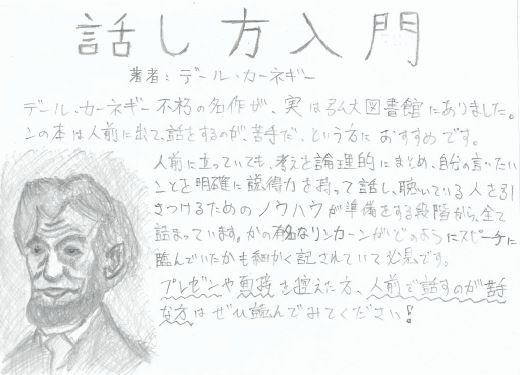 話し方入門
著者：デール・カーネギー
デール・カーネギー不朽の名作が、実は弘大図書館にありました。
この本は人前に出て、話をするのが、苦手だ、という方に おすすめです。
人前に立っていても、考えを論理的にまとめ、自分の言いたい
ことを明確に説得力を持って話し、聴いている人を引
きつけるためのノウハウが準備をする段階から、全て
詰まっています。かの有名なリンカーンがどのようにスピーチに
臨んでいたかも細かく記されていて必見です。
プレゼンや面接を控えた方、人前で話すのが苦手
な方はぜひ読んでみてください！